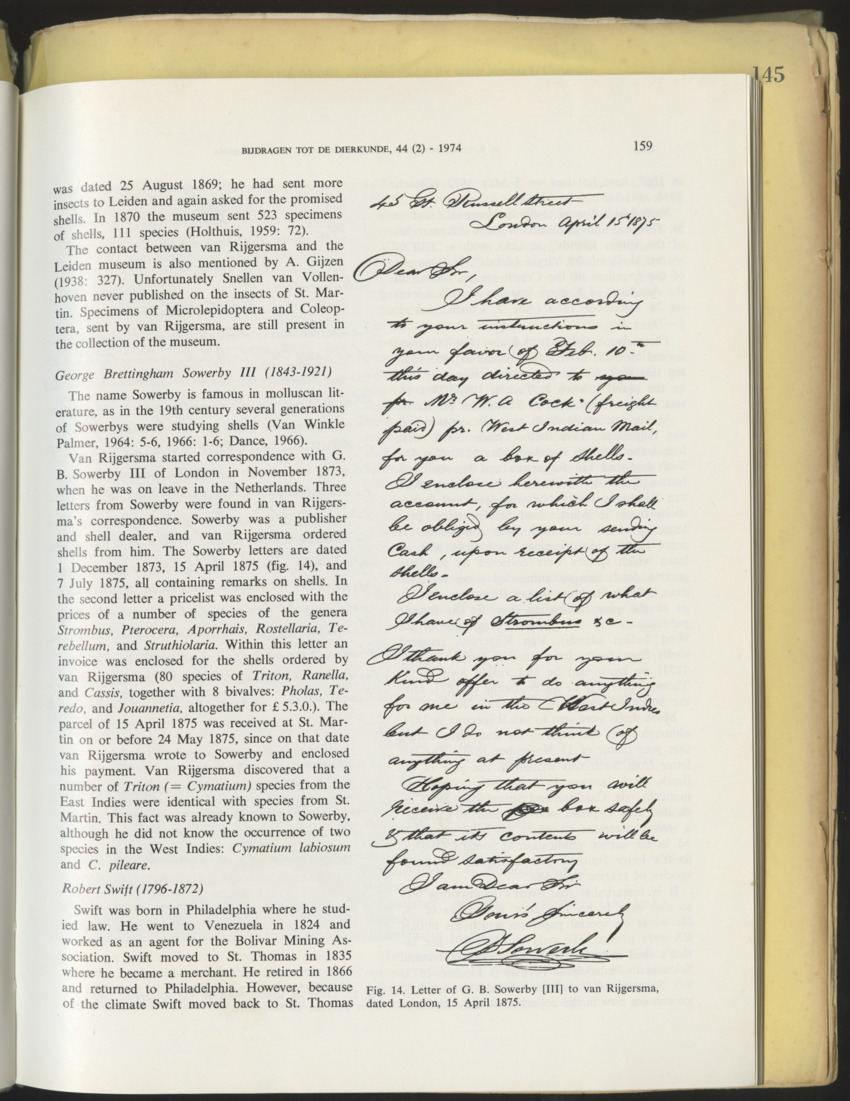 145
BIJDRAGEN TOT DE DIERKUNDE, 44 (2) - 1974
159
was dated 25 August 1869; he had sent more
insects to Leiden and again asked for the promised
shells. In 1870 the museum sent 523 specimens
of shells, 111 species (Holthuis, 1959: 72).
The contact between van Rijgersma and the
Leiden museum is also mentioned by A. Gijzen
(1938: 327). Unfortunately Snellen van Vollen-
hoven never published on the insects of St. Mar-
tin. Specimens of Microlepidoptera and Coleop-
tera, sent by van Rijgersma, are still present in
the collection of the museum.
George Brettingham Sowerby III (1843-1921)
The name Sowerby is famous in molluscan lit-
erature, as in the 19th century several generations
of Sowerbys were studying shells (Van Winkle
Palmer, 1964: 5-6, 1966: 1-6; Dance, 1966).
Van Rijgersma started correspondence with G.
B. Sowerby III of London in November 1873,
when he was on leave in the Netherlands. Three
letters from Sowerby were found in van Rijgers-
ma's correspondence. Sowerby was a publisher
and shell dealer, and van Rijgersma ordered
shells from him. The Sowerby letters are dated
1 December 1873, 15 April 1875 (fig. 14), and
7 July 1875, all containing remarks on shells. In
the second letter a pricelist was enclosed with the
prices of a number of species of the genera
Strombus, Pterocera, Aporrhais, Rostellaria, Te-
rebellum, and Struthiolaria. Within this letter an
invoice was enclosed for the shells ordered by
van Rijgersma (80 species of Triton, Ranella,
and Cassis, together with 8 bivalves: Pholas, Te-
redo, and Jouannetia, altogether for £ 5.3.0.). The
parcel of 15 April 1875 was received at St. Mar-
tin on or before 24 May 1875, since on that date
van Rijgersma wrote to Sowerby and enclosed
his payment. Van Rijgersma discovered that a
number of Triton (= Cymatium) species from the
East Indies were identical with species from St.
Martin. This fact was already known to Sowerby,
although he did not know the occurrence of two
species in the West Indies: Cymatium labiosum
and C. pileare.
Robert Swift (1796-1872)
Swift was born in Philadelphia where he stud-
ied law. He went to Venezuela in 1824 and
worked as an agent for the Bolivar Mining As-
sociation. Swift moved to St. Thomas in 1835
where he became a merchant. He retired in 1866
and returned to Philadelphia. However, because
of the climate Swift moved back to St. Thomas
45 Gt. Russell Street
London April 15 1875
Dear Sir,
I have according
to your instructions in
your favor of Feb. 10th
this day directed to
Mr. W. A Cock (freight
paid) pr. West Indian Mail,
for you a box of shells.
I enclose herewith the
account, for which I shall
be obliged by your sending
Cash, upon receipt of the
shells.
I enclose a list of what
I have of Strombus &c.
I thank you for your
kind offer to do anything
for me in the West Indies
but I do not think of
anything at present
Hoping that you will
receive the box safely
& that its contents will be
found satisfactory
I am Dear Sir
Yours Sincerely
G B Sowerby
Fig. 14. Letter of G. B. Sowerby [III] to van Rijgersma,
dated London, 15 April 1875.